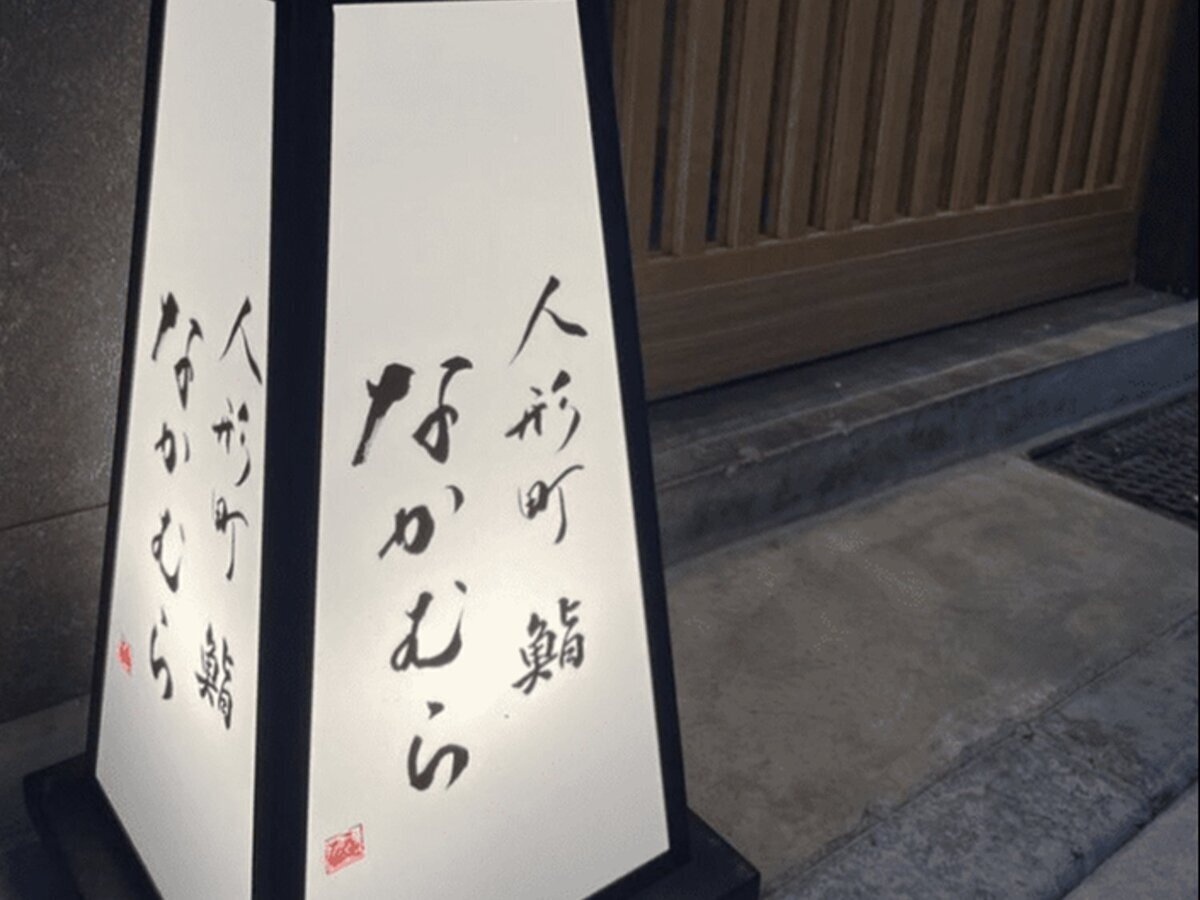 人形町 鮨
なかむら
人形町 鮨
なかむら